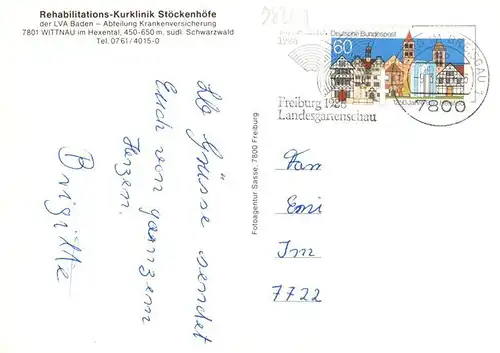 Rehabilitations-Kurklinik Stöckenhöfe
der LVA Baden – Abteilung Krankenversicherung
7801 WITTNAU im Hexental, 450-650 m, südl. Schwarzwald
Tel. 0761/4015-0
Lb Grüsse sendet
Euch von ganzem
Herzen.
Brigitte
Fotoagentur Sasse, 7800 Freiburg
1986
Deutsche Bundespost
60
Freiburg 1986
Landesgartenschau
7800
Fam
Emi
Im
7722